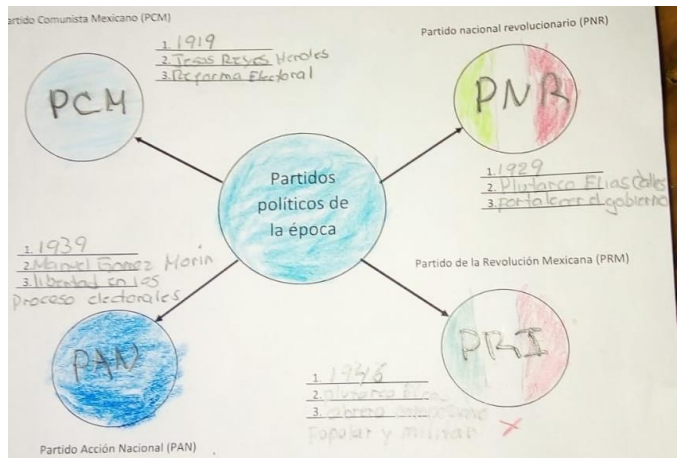 artido Comunista Mexicano (PCM)
1. 1919
2. Jesus Reyes Heroles
3. Reforma Electoral
PCM
Partido nacional revolucionario (PNR)
PNR
1. 1929
2. Plutarco Elias Calles
3. fortalecer el gobierno
Partidos
políticos de
la época
1. 1939
2. Manuel Gomez Morin
3. libertad en los
Proceso electorales
PAN
Partido Acción Nacional (PAN)
Partido de la Revolución Mexicana (PRM)
PRI
1. 1946
2. plutarco Elias
3. obrero campesino
Popular y militar